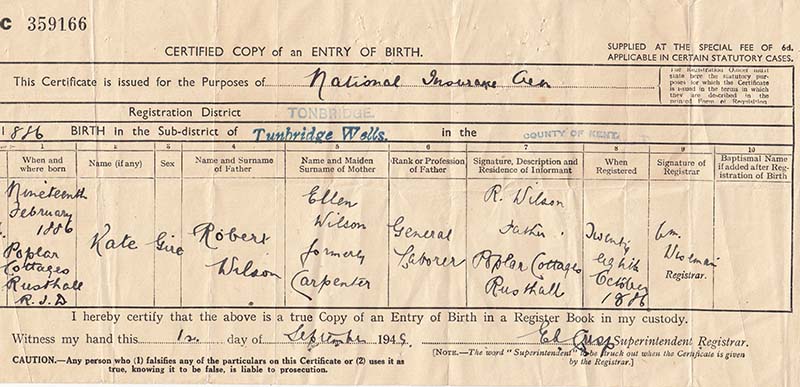 C 359166
CERTIFIED COPY of an ENTRY OF BIRTH.
SUPPLIED AT THE SPECIAL FEE OF 6d.
APPLICABLE IN CERTAIN STATUTORY CASES.
This Certificate is issued for the Purposes of National Insurance
Registration District TONBRIDGE.
1886 BIRTH in the Sub-district of Tunbridge Wells. in the COUNTY OF KENT
1 2 3 4 5 6 7 8 9 10
When and where born
Name (if any)
Sex
Name and Surname of Father
Name and Maiden Surname of Mother
Rank or Profession of Father
Signature, Description and Residence of Informant
When Registered
Signature of Registrar
Baptismal Name if added after Registration of Birth
Nineteenth
February
1886
Poplar
Cottages
Rusthall
R.S.D
Kate
Girl
Robert
Wilson
Ellen
Wilson
formerly
Carpenter
General
Laborer
R. Wilson
Father
Poplar Cottages
Rusthall
Twenty
eighth
October
1886
Wm.
Registrar.
I hereby certify that the above is a true Copy of an Entry of Birth in a Register Book in my custody.
Witness my hand this day of September 194 Superintendent Registrar.
CAUTION.—Any person who (1) falsifies any of the particulars on this Certificate or (2) uses it as
true, knowing it to be false, is liable to prosecution.
[NOTE.—The word "Superintendent" to be struck out when the Certificate is given
by the Registrar.]